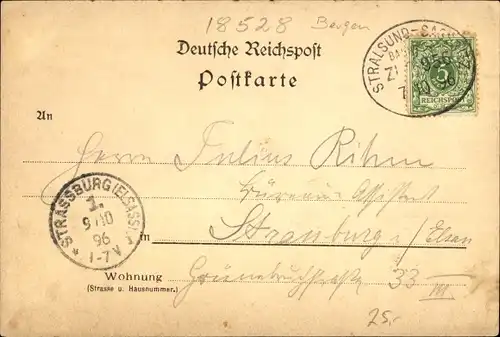 18528 Bergen
Deutsche Reichspost
Postkarte
STRALSUND-SASSNITZ
BAHNPOST
7 10 96
5
REICHSPOST
An
Herrn Julius Rihm
Büreau Assistent
in Strassburg i/Elsass
STRASSBURG (ELSASS) 1.
1.
9/10
96
1-7V
Wohnung
(Strasse u. Hausnummer.)
33 III
25.-